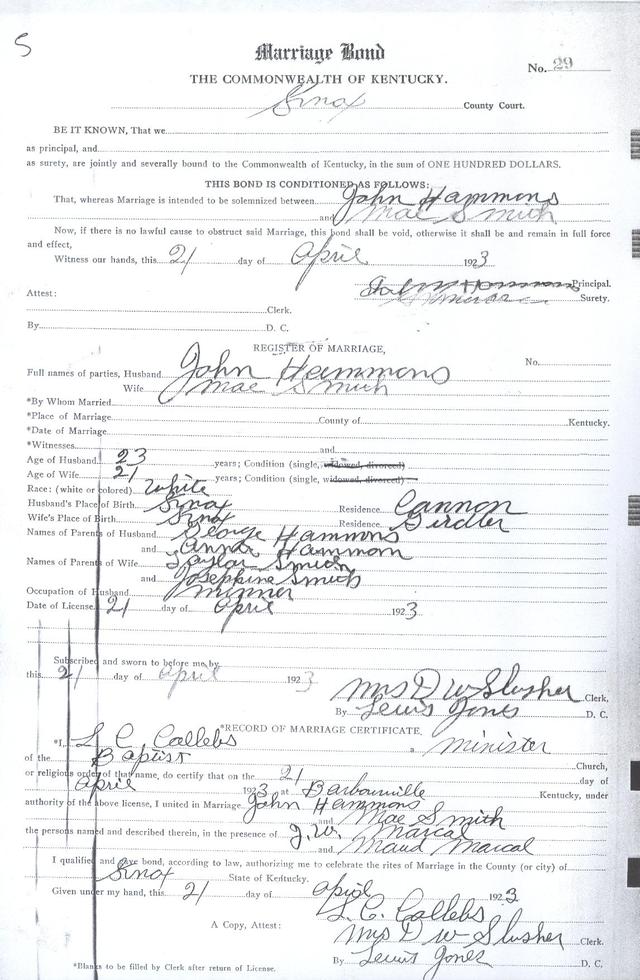 S
Marriage Bond
No. 29
THE COMMONWEALTH OF KENTUCKY.
Knox County Court.
BE IT KNOWN, That we
as principal, and
as surety, are jointly and severally bound to the Commonwealth of Kentucky, in the sum of ONE HUNDRED DOLLARS.
THIS BOND IS CONDITIONED AS FOLLOWS:
That, whereas Marriage is intended to be solemnized between John Hammons
and Mae Smith
Now, if there is no lawful cause to obstruct said Marriage, this bond shall be void, otherwise it shall be and remain in full force
and effect,
Witness our hands, this 21 day of April 1923
John Hammons Principal.
Attest: Surety.
Clerk.
By D. C.
REGISTER OF MARRIAGE,
Full names of parties, Husband John Hammons No.
Wife Mae Smith
*By Whom Married
*Place of Marriage County of Kentucky.
*Date of Marriage
*Witnesses and
Age of Husband 23 years; Condition (single, widowed, divorced)
Age of Wife 21 years; Condition (single, widowed, divorced)
Race: (white or colored) White
Husband's Place of Birth Knox Residence Cannon
Wife's Place of Birth Knox Residence Girdler
Names of Parents of Husband George Hammons
and Anna Hammon
Names of Parents of Wife Taylor Smith
and Josephine Smith
Occupation of Husband minner
Date of License 21 day of April 1923
Subscribed and sworn to before me by
this 21 day of April 1923
Mrs D W Slusher Clerk,
By Lewis Jones D. C.
*RECORD OF MARRIAGE CERTIFICATE.
*I, L. C. Callebs a minister
of the Baptist Church,
or religious order of that name, do certify that on the 21 day of
April 1923 at Barbourville Kentucky, under
authority of the above license, I united in Marriage John Hammons
and Mae Smith
the persons named and described therein, in the presence of J. W. Marcal
and Maud Marcal
I qualified and gave bond, according to law, authorizing me to celebrate the rites of Marriage in the County (or city) of
Knox State of Kentucky.
Given under my hand, this 21 day of April 1923
L. C. Callebs
A Copy, Attest: Mrs D W Slusher Clerk.
By Lewis Jones D. C.
*Blanks to be filled by Clerk after return of License.